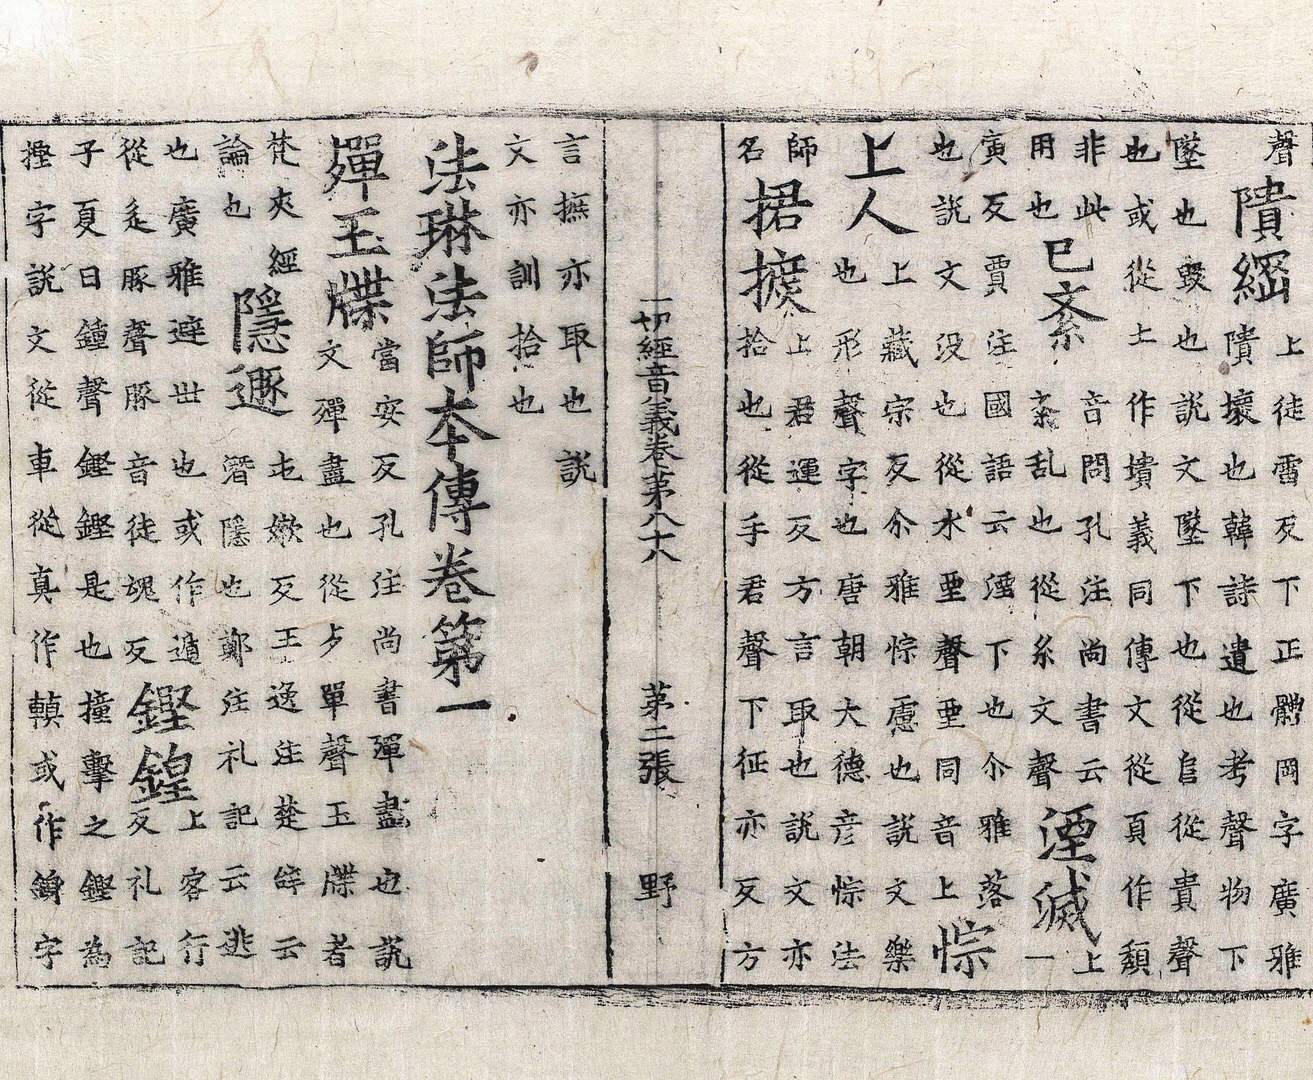 聲
隤綱
上徒雷反下正體岡字廣雅
隤壞也韓詩遺也考聲物下
墜也毀也說文墜下也從𨸏從貴聲
也或從土作墤義同傳文從頁作頹
非此
用也
已紊
音問孔注尚書云
紊乱也從糸文聲
湮滅
上
一
寅反賈注國語云湮下也尒雅落
也説文没也從水垔聲垔同音上
悰
上人
上藏宗反尒雅悰慮也説文樂
也形聲字也唐朝大德彦悰法
師
名
捃摭
上君運反方言取也説文亦
拾也從手君聲下征亦反方
一切經音義卷苐八十八 苐二張 野
言摭亦取也説
文亦訓拾也
法琳法師本傳卷第一
殫玉牒
當安反孔注尚書殫盡也説
文殫盡也從歹單聲玉牒者
梵夾經
論也
隱遯
屯嫩反王逸注楚辞云
潛隱也鄭注礼記云逃
也廣雅避世也或作遁
從辵豚聲豚音徒魂反
鏗鍠
上客行
反礼記
子夏曰鍾聲鏗鏗是也撞擊之鏗為
摼字説文從車從真作䡩或作字